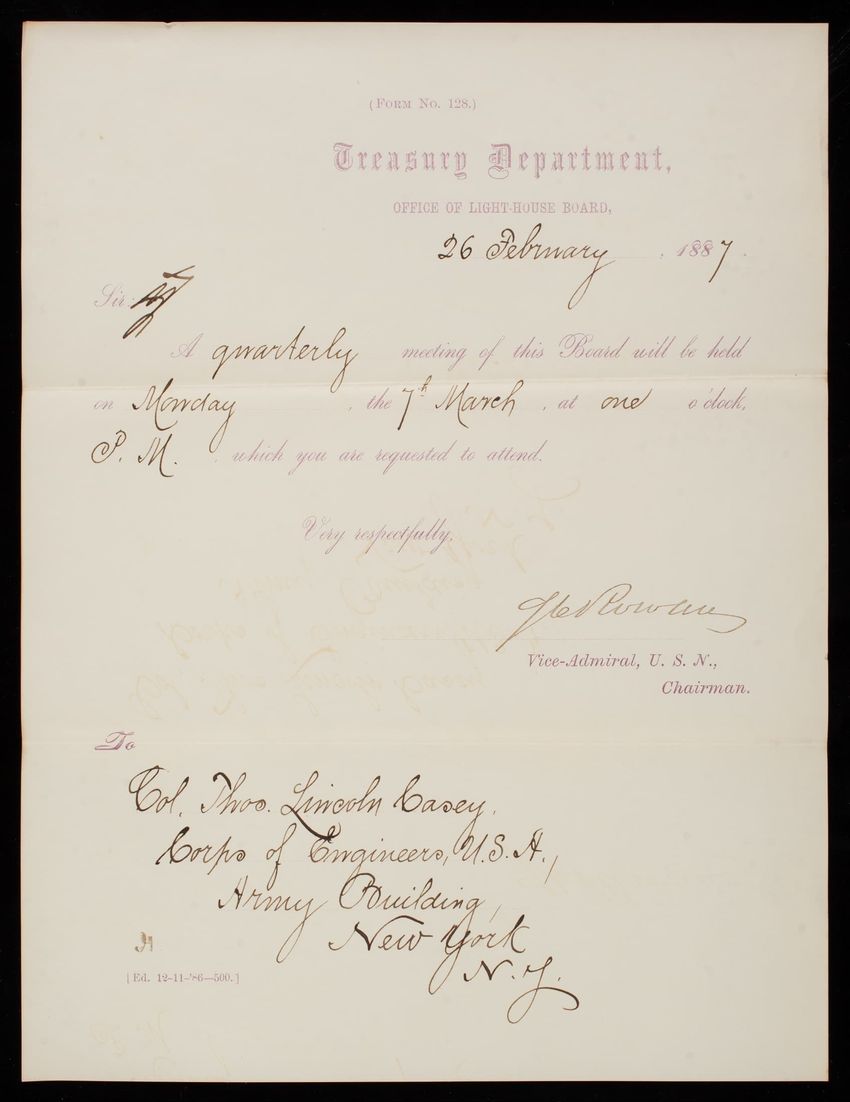 (FORM NO. 128.)
Treasury Department,
OFFICE OF LIGHT-HOUSE BOARD,
26 February, 1887.
Sir:
A quarterly meeting of this Board will be held
on Monday, the 7th March, at one o'clock,
P. M., which you are requested to attend.
Very respectfully,
Rowan
Vice-Admiral, U. S. N.,
Chairman.
To
Col. Thos. Lincoln Casey,
Corps of Engineers, U.S.A.,
Army Building,
New York
N.Y.
[Ed. 12-11-'86—500.]